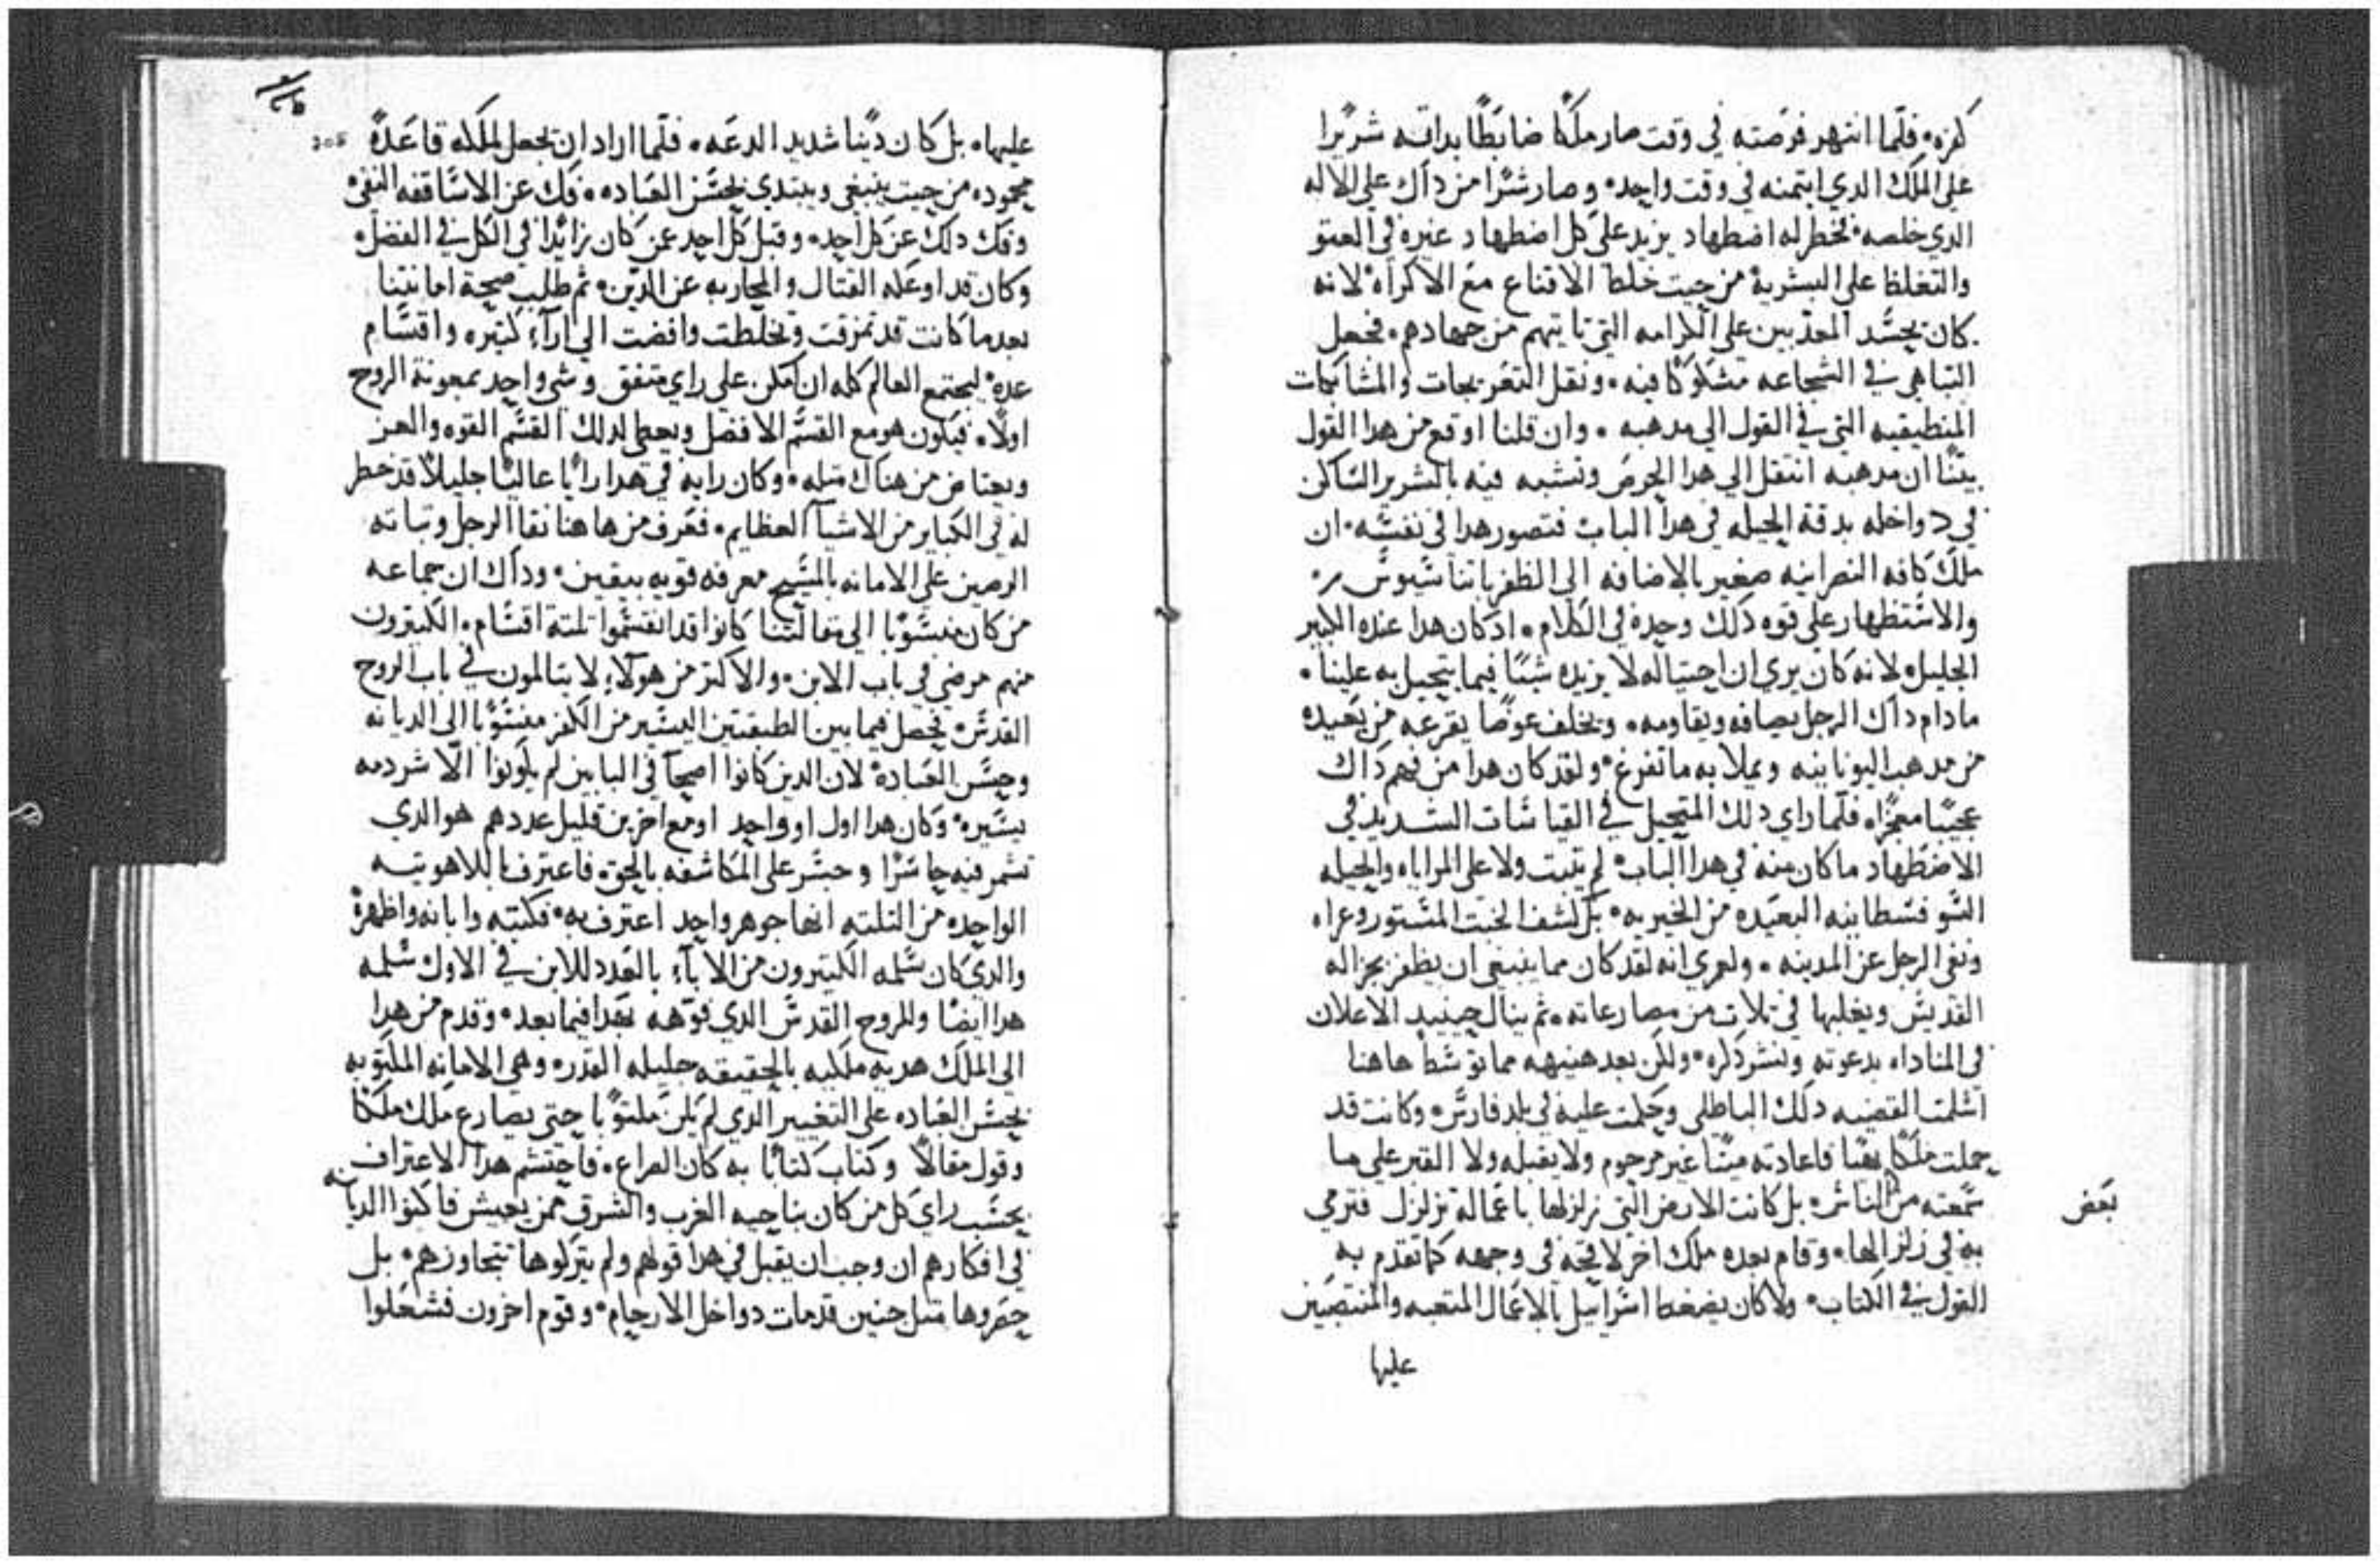 كفره فلما انتهر فرصته في وقت صار ملكًا ضابطًا بداته شريرا
على الملك الدي ايتمنه في وقت واحد وصار شرًا من داك على الاله
الدي خلصه فخطر له اضطهاد يزيد على كل اضطهاد غيره في العتو
والتغلظ على البشرية من حيت خلط الاقناع مع الاكراه لانه
كان يحسد المعدبين على الكرامه التي تاتيهم من جهادهم فجعل
التباهي في الشجاعه مشكوكا فيه ونقل التعريجات والمشابكات
المنطيقيه التي في القول الى مدهبه وان قلنا اوقع من هدا القول
بيتًا ان مدهبه انتقل الى هدا الحرص وتشبه فيه بالشرير الساكن
في دواخله بدقة الحيله في هدا الباب فتصور هدا في نفسه ان
ملك كافه النصرانيه صغير بالاضافه الى الظفر باتناسيوس
والاستظهار على قوه دلك وحده في الكلام ادكان هدا عنده الكبير
الجليل لانه كان يري ان احتياله لا يزيده شيئا فيما يتحيل به علينا
مادام داك الرجل يصافه ويقاومه ويخلف عوضًا يقرعه من بعيده
من مدهب اليونانيه ويملا به ما تفرغ ولقد كان هدا من فهم داك
عجيبًا معجزًا فلما راي دلك المتحيل في القياسات الشديد في
الاضطهاد ما كان منه في هدا الباب لم يتبت ولا على المراياه والحيله
السوفسطانيه البعيده من الخيريه بل كشف الخبت المستور وعراه
ونفي الرجل عن المدينه ولعمري انه لقد كان مما ينبغي ان يظفر بجزاله
القديس ويغلبها في تلات من مصارعاته تم ينال حينيد الاعلان
في المناداه بدعوته ونشر دكره ولكن بعد هنيهه مما توسط هاهنا
اسلمت القضيه دلك الباطلي وحكمت عليه في بلد فارس وكانت قد
حملت ملكًا فاعادته ميتًا غير مرحوم ولا يقبله ولا القبر على ما
سمعته من الناس بل كانت الارض التي زلزلها باعماله تزلزل فترمي
بعض
به في زلزالها وقام بعده ملك اخر لا قحه في وجهه كما تقدم به
القول في الكتاب ولا كان يضغط اسراييل بالاعمال المتعبه والمنتصبين
عليها
عليها بل كان دينا شديد الدعه فلما اراد ان يجعل لملكه قاعدة
305
محموده من حيت ينبغي ويبتدي بحسن العباده فك عن الاساقفه النفي
وفك دلك عن كل احد وقبل كل احد عن من كان زايدا في الكل في الفضل
وكان قد اوعله القتال والمحاربه عن الدين تم طلب صحة امانتنا
بعد ما كانت قد تمزقت وتخلطت وافضت الى اراء كتيره واقسام
عده ليجتمع العالم كله ان امكن على راي متفق وشي واحد بمعونة الروح
اولًا فيكون هو مع القسم الافضل ويعطي لدلك القسم القوه والعز
ويعتاض من هناك متله وكان رايه في هدا رايًا عاليًا جليلًا قد خطر
له في الكباير من الاشيا العظايم فعرف من هاهنا نقا الرجل وتباته
الرصين على الامانه بالمسيح معرفه قويه بيقين ودلك ان جماعه
من كان منسوبًا الى مقالتنا كانوا قد انقسموا تلتة اقسام الكتيرون
منهم مرضي في باب الابن والاكتر من هولاء لا يتالمون في باب الروح
القدس فحصل فيما بين الطبقتين اليسير من الكفر منسوبًا الى الديانه
وحسن العباده لان الدين كانوا اصحا في البابين لم يكونوا الا شردمه
يسيره وكان هدا اول او واحد او مع اخرين قليل عددهم هو الدي
تشمر فيه حاسرًا وجسر على المكاشفه بالحق فاعترف باللاهوتيه
الواحده من التلته انها جوهر واحد اعترف به فكتبه وابانه واظهره
والدي كان سلمه الكتيرون من الاباء بالعدد للابن في الاول سلمه
هدا ايضا وللروح القدس الدي فوهه فيما بعد وقدم من هدا
الى الملك هديه ملكيه بالحقيقه جليله القدر وهي الامانه المكتوبه
بحسن العباده على التغيير الدي لم يكن مكتوبًا حتى يصارع ملك ملكًا
وقول مقالًا وكتاب كتابًا به كان الصراع فاحتشم هدا الاعتراف
بحسب راي كل من كان بناحيه الغرب والشرق ممن يعيش فاكنوا الديانه
في افكارهم ان وجب ان يقبل في هدا قولهم ولم يتركوها تتجاوزهم بل
حقروها متل جنين قد مات دواخل الارحام وقوم اخرون فشعلوا